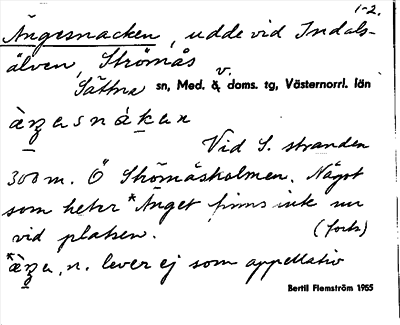 1-2.
Ängesnacken, udde vid Indals-
älven, Strömås
Sättna sn, Med. v. doms. tg, Västernorrl. län
Vid S. stranden
300 m. Ö Strömåsholmen. Något
som heter *Änget finns inte nu
vid platsen. (forts)
n. lever ej som appellativ
Bertil Flemström 1955